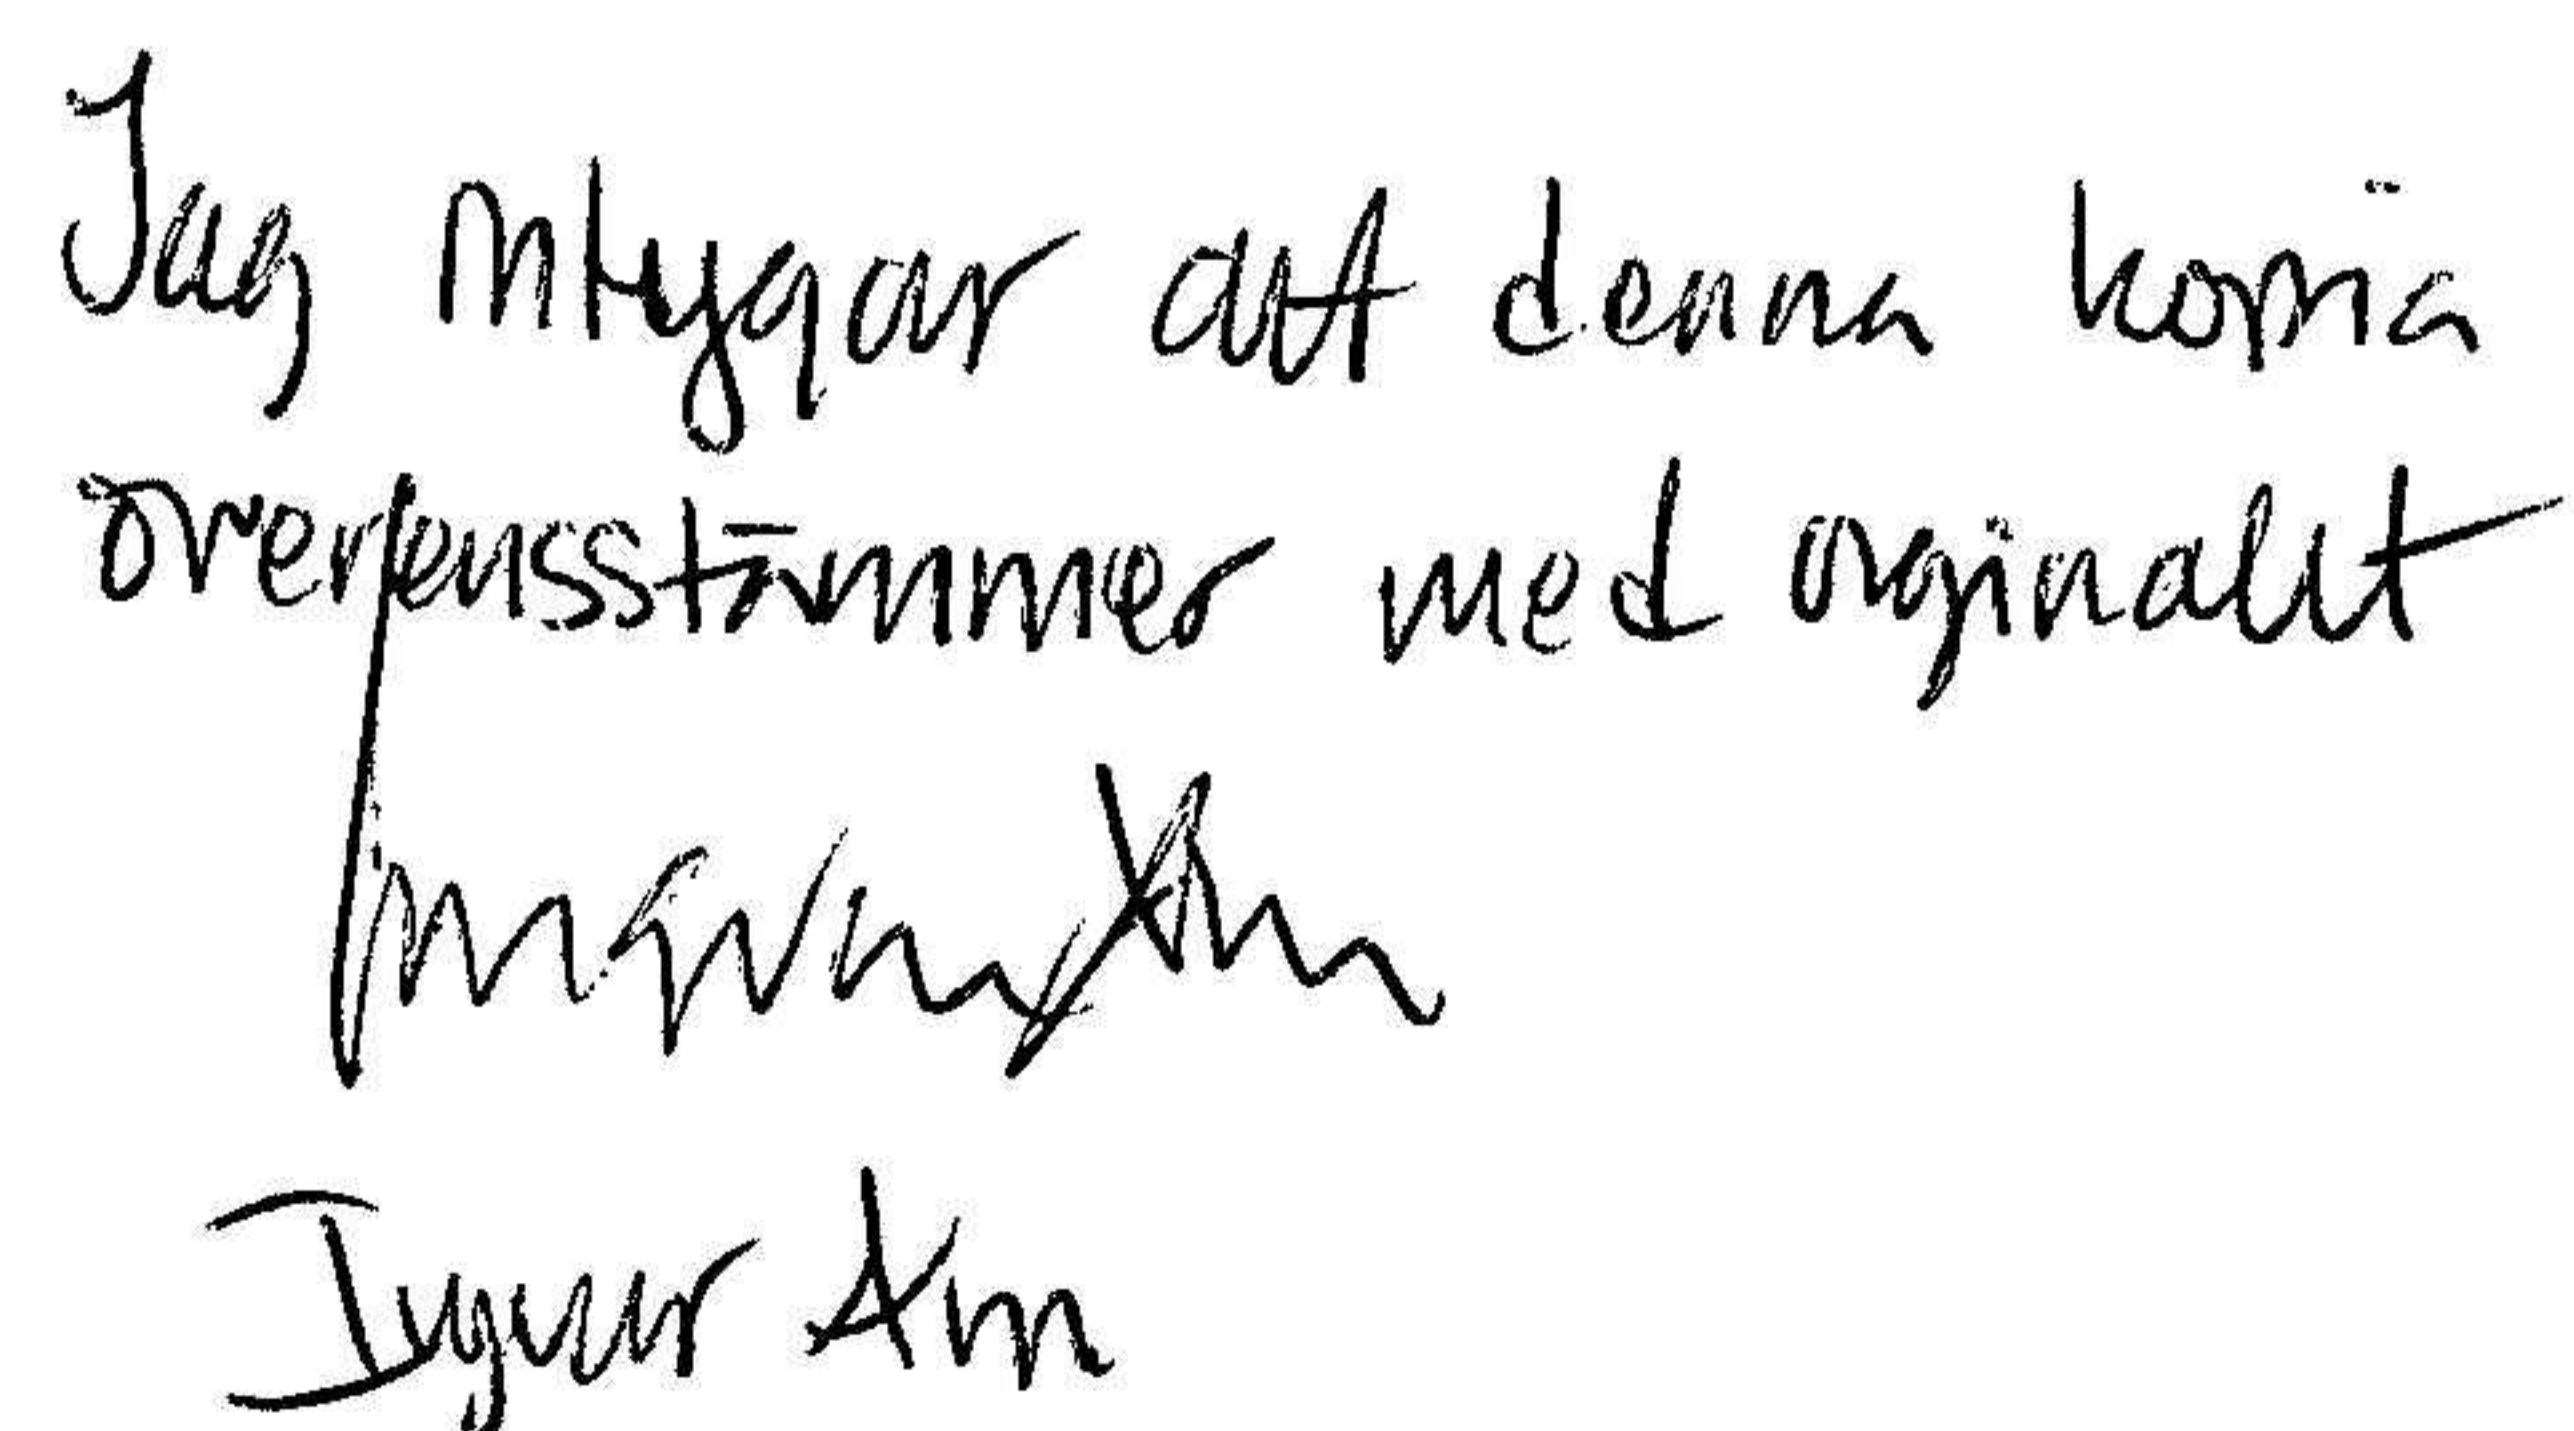 Jag intygar att denna kopia
överensstämmer med orginalet